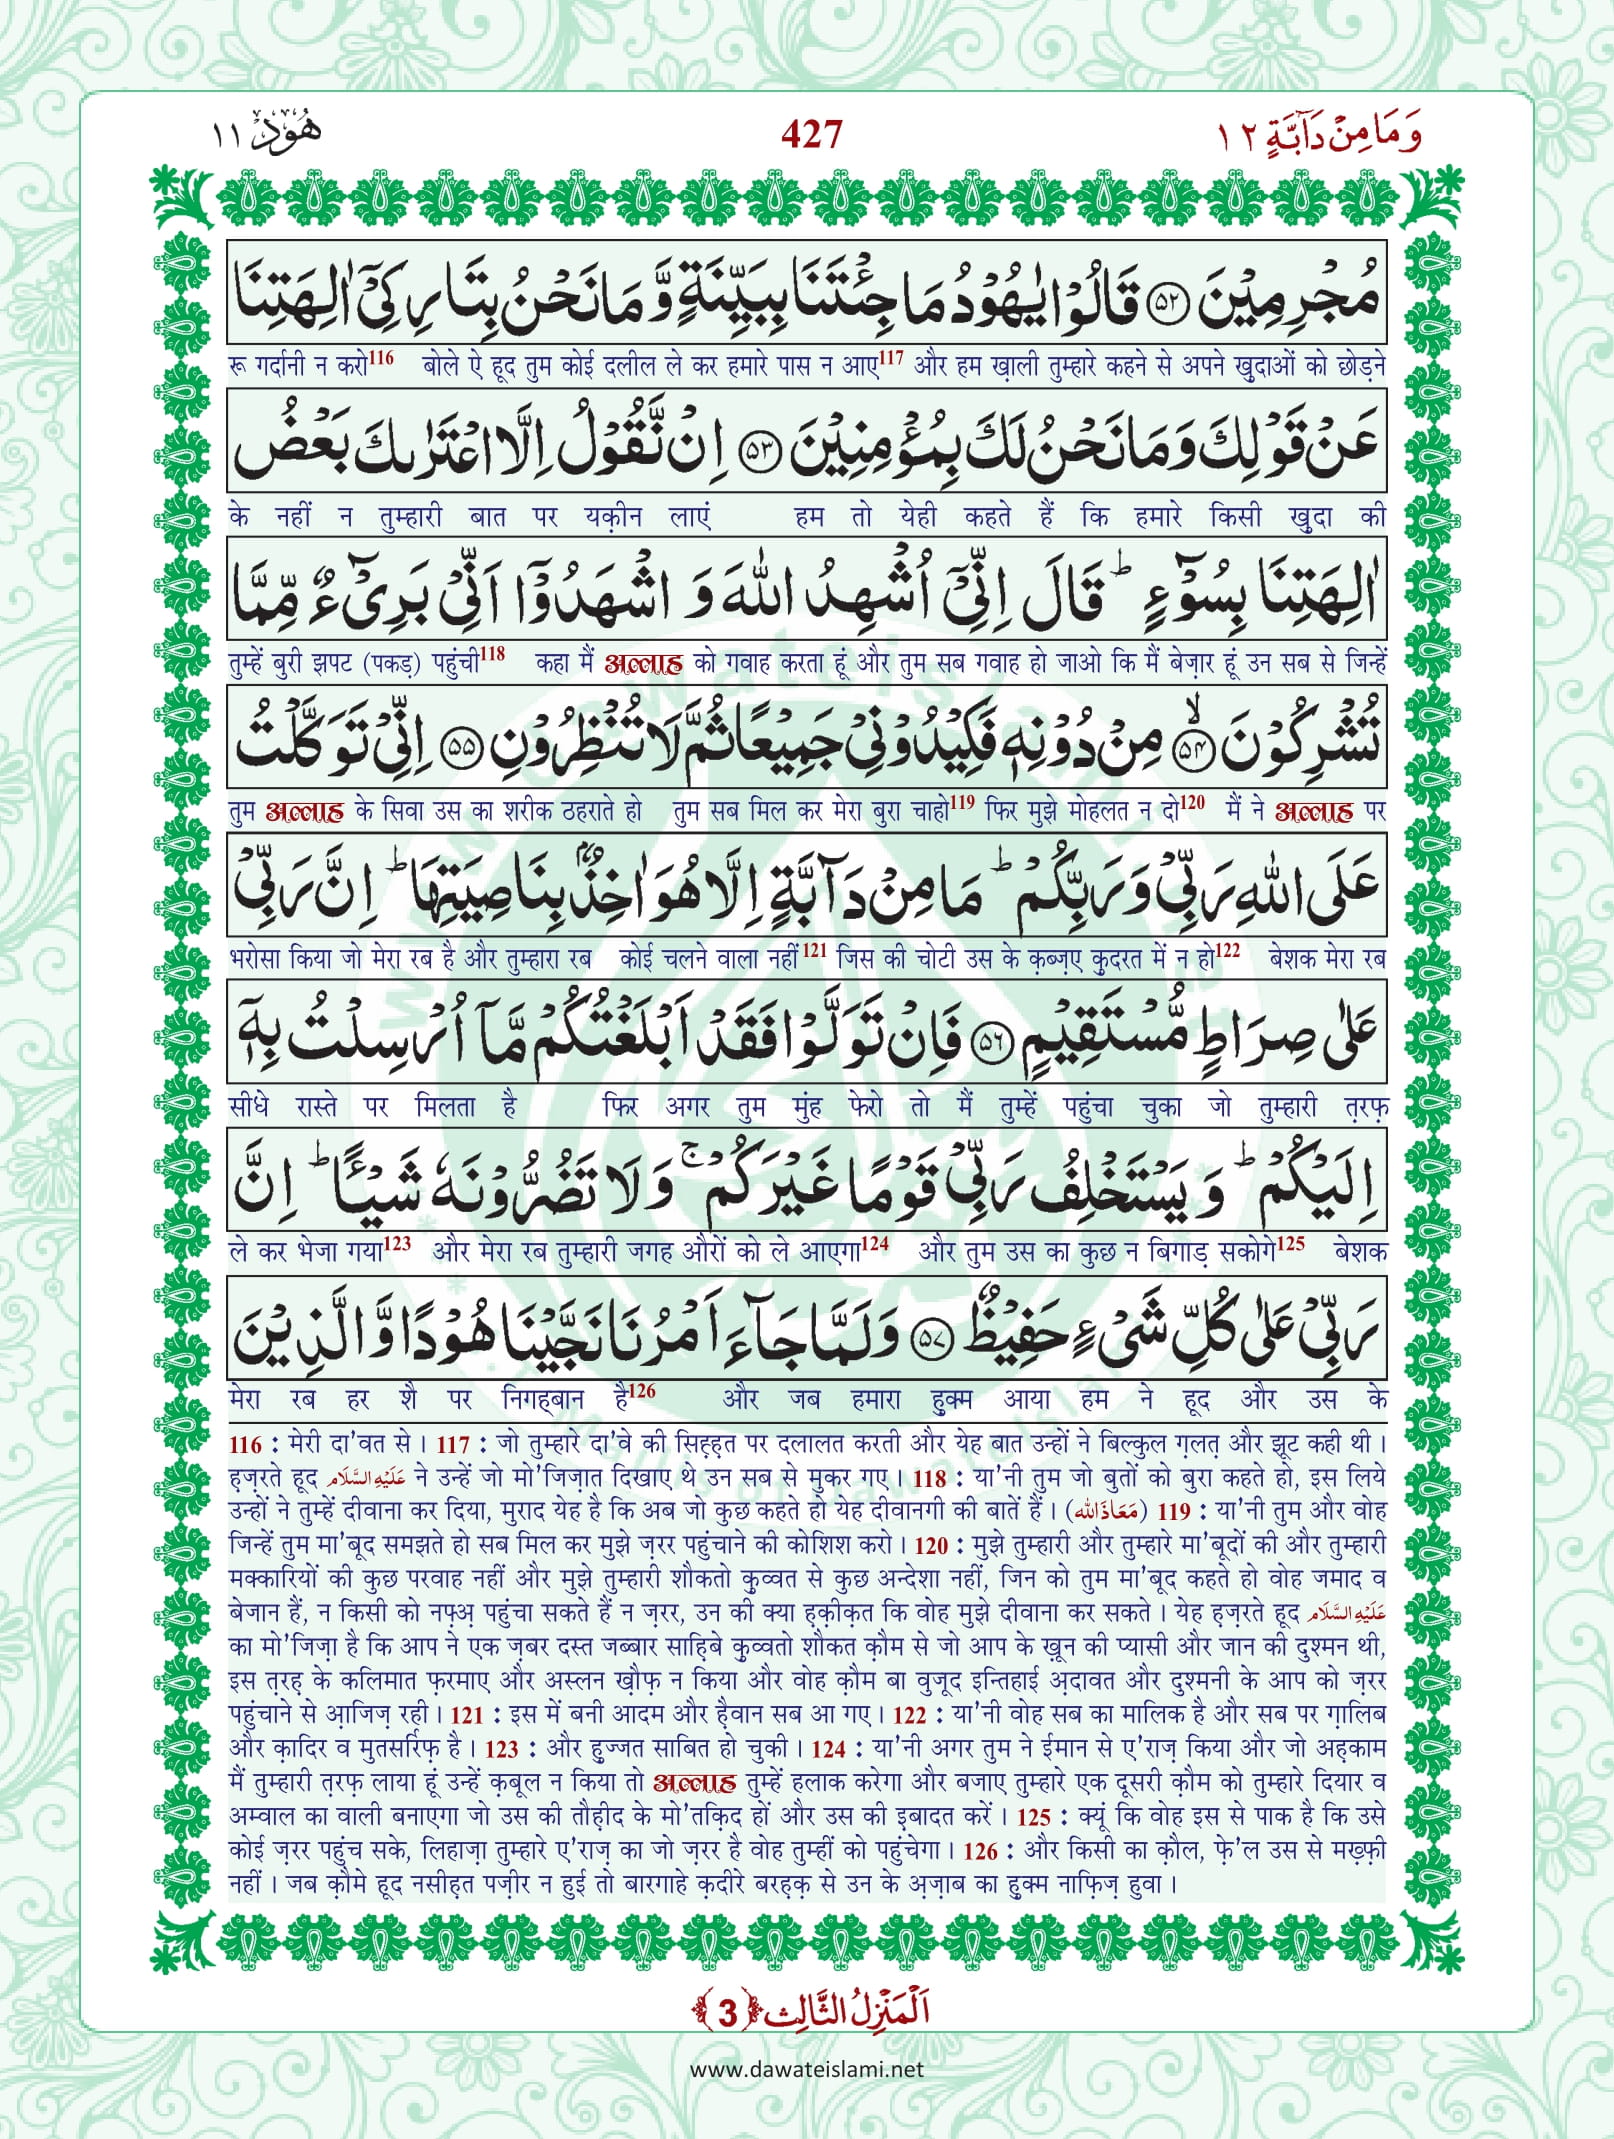 وَمَا مِنْ دَآبَّةٍ ١٢
427
هُوْد ١١
مُجْرِمِيْنَ ﴿۵۲﴾ قَالُوْا يٰهُوْدُ مَا جِئْتَنَا بِبَيِّنَةٍ وَّ مَا نَحْنُ بِتَارِكِيْۤ اٰلِهَتِنَا
रू गर्दानी न करो116 बोले ऐ हूद तुम कोई दलील ले कर हमारे पास न आए117 और हम ख़ाली तुम्हारे कहने से अपने खुदाओं को छोड़ने
عَنْ قَوْلِكَ وَ مَا نَحْنُ لَكَ بِمُؤْمِنِيْنَ ﴿۵۳﴾ اِنْ نَّقُوْلُ اِلَّا اعْتَرٰىكَ بَعْضُ
के नहीं न तुम्हारी बात पर यक़ीन लाएं हम तो येही कहते हैं कि हमारे किसी खुदा की
اٰلِهَتِنَا بِسُوْٓءٍ ؕ قَالَ اِنِّيْۤ اُشْهِدُ اللّٰهَ وَ اشْهَدُوْۤا اَنِّيْ بَرِيْٓءٌ مِّمَّا
तुम्हें बुरी झपट (पकड़) पहुंची118 कहा मैं अल्लाह को गवाह करता हूं और तुम सब गवाह हो जाओ कि मैं बेज़ार हूं उन सब से जिन्हें
تُشْرِكُوْنَ ۙ﴿۵۴﴾ مِنْ دُوْنِهٖ فَكِيْدُوْنِيْ جَمِيْعًا ثُمَّ لَا تُنْظِرُوْنِ ﴿۵۵﴾ اِنِّيْ تَوَكَّلْتُ
तुम अल्लाह के सिवा उस का शरीक ठहराते हो तुम सब मिल कर मेरा बुरा चाहो119 फिर मुझे मोहलत न दो120 मैं ने अल्लाह पर
عَلَى اللّٰهِ رَبِّيْ وَ رَبِّكُمْ ؕ مَا مِنْ دَآبَّةٍ اِلَّا هُوَ اٰخِذٌۢ بِنَاصِيَتِهَا ؕ اِنَّ رَبِّيْ
भरोसा किया जो मेरा रब है और तुम्हारा रब कोई चलने वाला नहीं121 जिस की चोटी उस के क़ब्ज़ए क़ुदरत में न हो122 बेशक मेरा रब
عَلٰى صِرَاطٍ مُّسْتَقِيْمٍ ﴿۵۶﴾ فَاِنْ تَوَلَّوْا فَقَدْ اَبْلَغْتُكُمْ مَّاۤ اُرْسِلْتُ بِهٖۤ
सीधे रास्ते पर मिलता है फिर अगर तुम मुंह फेरो तो मैं तुम्हें पहुंचा चुका जो तुम्हारी त़रफ़
اِلَيْكُمْ ؕ وَ يَسْتَخْلِفُ رَبِّيْ قَوْمًا غَيْرَكُمْ ۚ وَ لَا تَضُرُّوْنَهٗ شَيْـًٔا ؕ اِنَّ
ले कर भेजा गया123 और मेरा रब तुम्हारी जगह औरों को ले आएगा124 और तुम उस का कुछ न बिगाड़ सकोगे125 बेशक
رَبِّيْ عَلٰى كُلِّ شَيْءٍ حَفِيْظٌ ﴿۵۷﴾ وَ لَمَّا جَآءَ اَمْرُنَا نَجَّيْنَا هُوْدًا وَّ الَّذِيْنَ
मेरा रब हर शै पर निगह्बान है126 और जब हमारा हुक्म आया हम ने हूद और उस के
116 : मेरी दा'वत से। 117 : जो तुम्हारे दा'वे की सिह़्ह़त पर दलालत करती और येह बात उन्हों ने बिल्कुल ग़लत़ और झूट कही थी।
ह़ज़रते हूद عَلَيْهِ السَّلَام ने उन्हें जो मो'जिज़ात दिखाए थे उन सब से मुकर गए। 118 : या'नी तुम जो बुतों को बुरा कहते हो, इस लिये
उन्हों ने तुम्हें दीवाना कर दिया, मुराद येह है कि अब जो कुछ कहते हो येह दीवानगी की बातें हैं। (مَعَاذَ اللّٰه) 119 : या'नी तुम और वोह
जिन्हें तुम मा'बूद समझते हो सब मिल कर मुझे ज़रर पहुंचाने की कोशिश करो। 120 : मुझे तुम्हारी और तुम्हारे मा'बूदों की और तुम्हारी
मक्कारियों की कुछ परवाह नहीं और मुझे तुम्हारी शौकतो क़ुव्वत से कुछ अन्देशा नहीं, जिन को तुम मा'बूद कहते हो वोह जमाद व
बेजान हैं, न किसी को नफ़्अ़ पहुंचा सकते हैं न ज़रर, उन की क्या ह़क़ीक़त कि वोह मुझे दीवाना कर सकते। येह ह़ज़रते हूद عَلَيْهِ السَّلَام
का मो'जिज़ा है कि आप ने एक ज़बर दस्त जब्बार साह़िबे क़ुव्वतो शौकत क़ौम से जो आप के ख़ून की प्यासी और जान की दुश्मन थी,
इस त़रह़ के कलिमात फ़रमाए और अस्लन ख़ौफ़ न किया और वोह क़ौम बा वुजूद इन्तिहाई अ़दावत और दुश्मनी के आप को ज़रर
पहुंचाने से आ़जिज़ रही। 121 : इस में बनी आदम और ह़ैवान सब आ गए। 122 : या'नी वोह सब का मालिक है और सब पर ग़ालिब
और क़ादिर व मुतसर्रिफ़ है। 123 : और हुज्जत साबित हो चुकी। 124 : या'नी अगर तुम ने ईमान से ए'राज़ किया और जो अह़काम
मैं तुम्हारी त़रफ़ लाया हूं उन्हें क़बूल न किया तो अल्लाह तुम्हें हलाक करेगा और बजाए तुम्हारे एक दूसरी क़ौम को तुम्हारे दियार व
अम्वाल का वाली बनाएगा जो उस की तौह़ीद के मो'तक़िद हों और उस की इबादत करें। 125 : क्यूं कि वोह इस से पाक है कि उसे
कोई ज़रर पहुंच सके, लिहाज़ा तुम्हारे ए'राज़ का जो ज़रर है वोह तुम्हीं को पहुंचेगा। 126 : और किसी का क़ौल, फ़े'ल उस से मख़्फ़ी
नहीं। जब क़ौमे हूद नसीह़त पज़ीर न हुई तो बारगाहे क़दीरे बरह़क़ से उन के अ़ज़ाब का हुक्म नाफ़िज़ हुवा।
اَلْمَنْزِلُ الثَّالِث ﴿3﴾
www.dawateislami.net